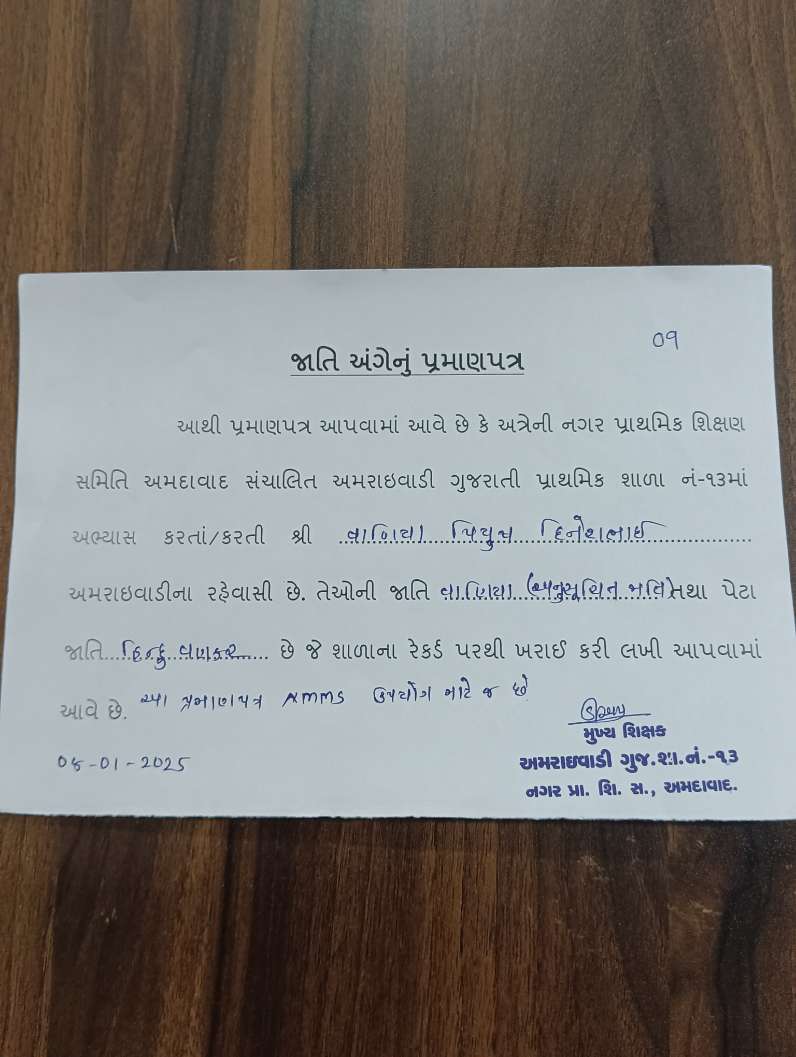 09
જાતિ અંગેનું પ્રમાણપત્ર
આથી પ્રમાણપત્ર આપવામાં આવે છે કે અત્રેની નગર પ્રાથમિક શિક્ષણ
સમિતિ અમદાવાદ સંચાલિત અમરાઇવાડી ગુજરાતી પ્રાથમિક શાળા નં-૧૩માં
અભ્યાસ કરતાં/કરતી શ્રી વાણિયા પિયુષ દિનેશભાઈ
અમરાઇવાડીના રહેવાસી છે. તેઓની જાતિ વાણિયા (અનુસૂચિત જાતિ) તથા પેટા
જાતિ હિન્દુ વણકર છે જે શાળાના રેકર્ડ પરથી ખરાઈ કરી લખી આપવામાં
આવે છે. આ પ્રમાણપત્ર NMMS ઉપયોગ માટે જ છે
મુખ્ય શિક્ષક
-01-2025
અમરાઇવાડી ગુજ.શા.નં.-૧૩
નગર પ્રા. શિ. સ., અમદાવાદ.